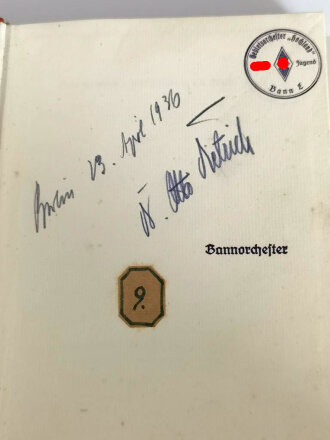 Gebietsorchester „Hochland“
Jugend
Bann L
Berlin 23. April 1936
Dr. Otto Dietrich
Bannorchester
9.